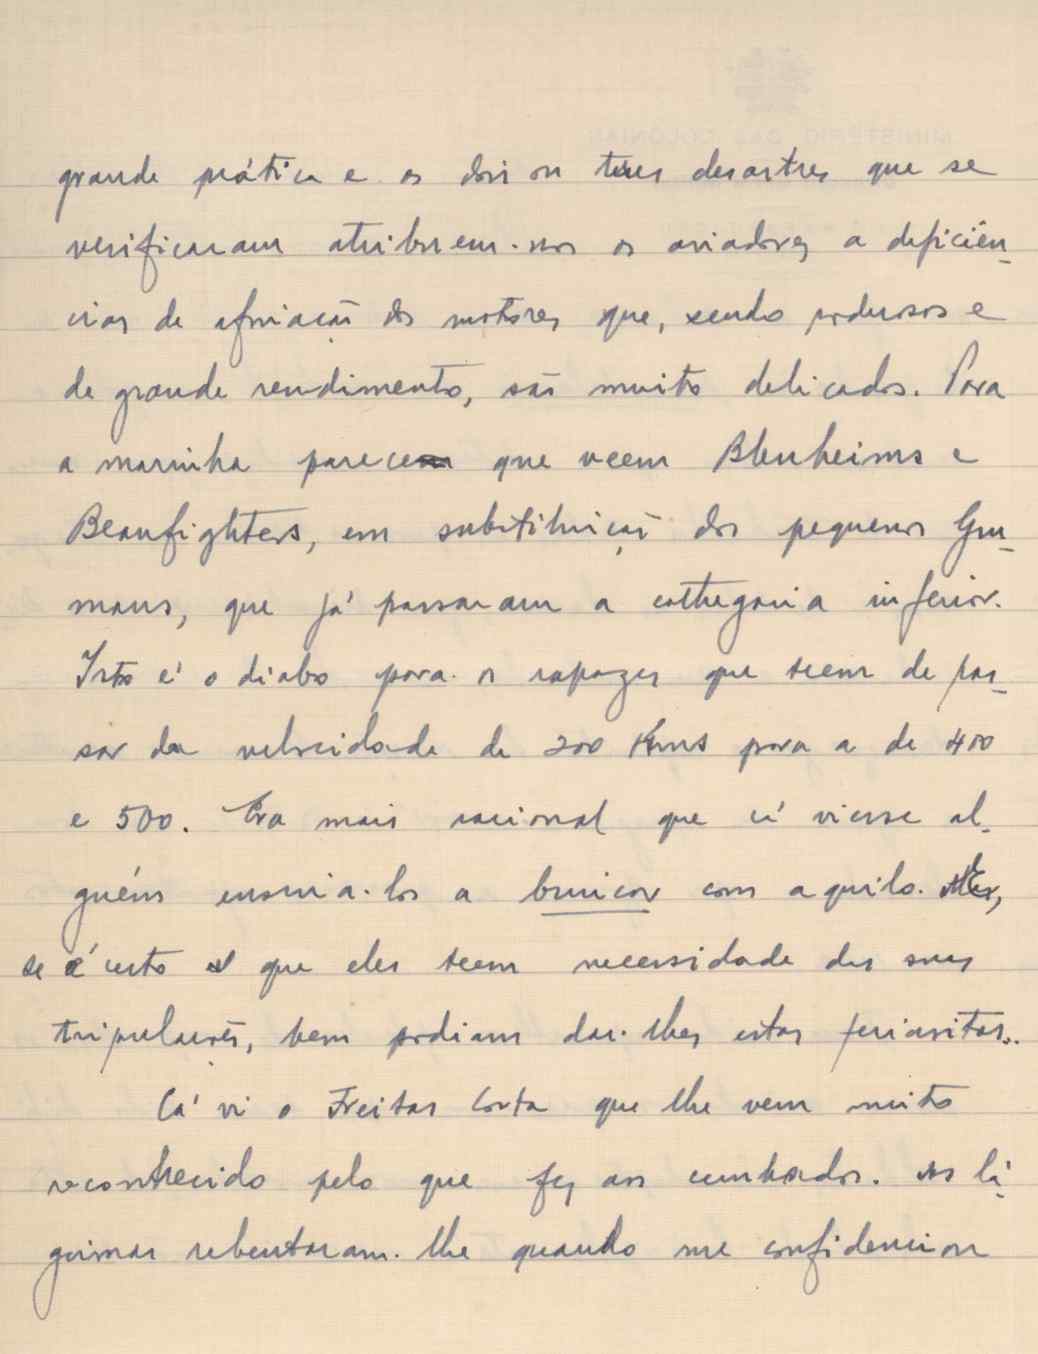 MINISTÉRIO DAS COLÓNIAS
grande prática e os dois ou três desastres que se
verificaram atribuem-nos os aviadores a deficiên-
cias de afinação dos motores que, sendo poderosos e
de grande rendimento, são muito delicados. Para
a marinha parece que veem Blenheims e
Beaufighters, em substituição dos pequenos Gru-
mans, que já passaram a cathegoria inferior.
Isto é o diabo para os rapazes que teem de pas-
sar da velocidade de 200 Kms para a de 400
e 500. Era mais racional que cá viesse al-
guém ensina-los a brincar com aquilo. Mas,
se é certo que eles teem necessidade das suas
tripulações, bem podiam dar-lhes estas feriasitas..
Cá vi o Freitas Costa que lhe vem muito
reconhecido pelo que fez aos cunhados. As lá-
grimas rebentaram-lhe quando me confidenciou